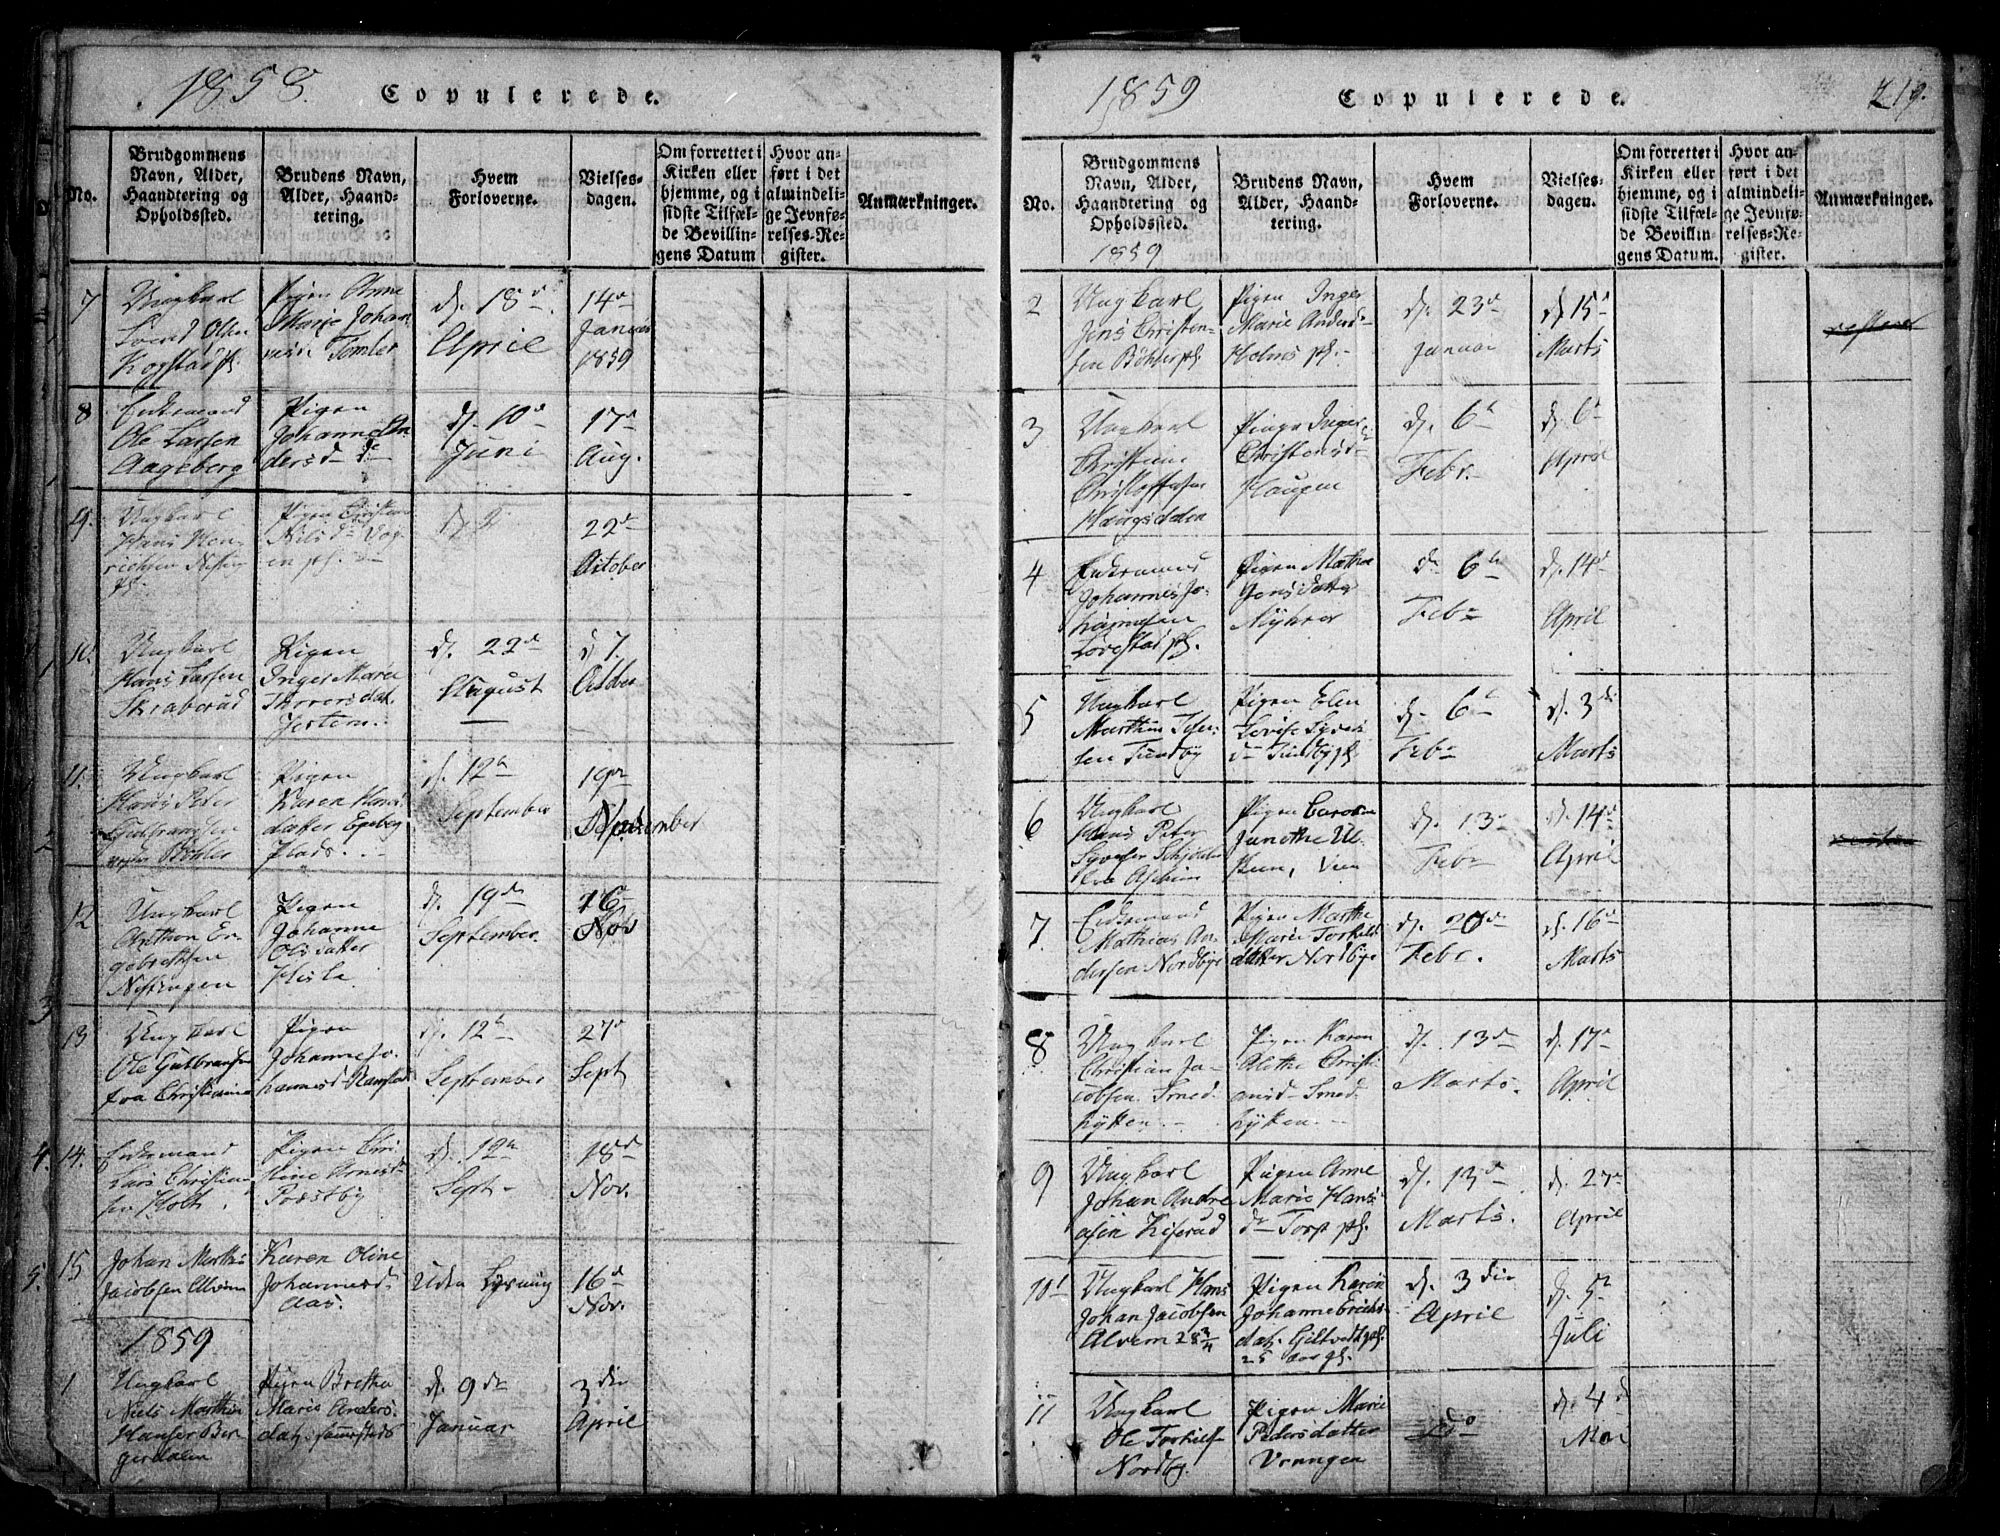 1858.
Copulerede.
No.
Brudgommens
Navn, Alder,
Haandtering og
Opholdssted.
Brudens Navn,
Alder, Haand-
tering.
Hvem
Forloverne.
Vielses-
dagen.
Om forrettet i
Kirken eller
hjemme, og i
sidste Tilfæl-
de Bevillin-
gens Datum
Hvor an-
ført i det
almindeli-
ge Jevnfø-
relses-Re-
gister.
Anmærkninger.
7
Ungkarl
Olsen
Kogstad pl.
Pigen Anne
Marie Johan
Tomter
d. 18d.
April
14d
Januar
1859
8
Enkemand
Ole Larsen
Aageberg
Pigen
Johanne An
dersd. de
d. 10d
Juni
17d
Aug.
9.
Ungkarl
Hans Hen-
richsen
pl.
Pigen
Nilsd.
en pl.
22de
October
10.
Ungkarl
Hans Larsen
Skraberud
Pigen
Inger Marie
Thorersdat.
d. 22de
August
d 7.
Octber
11.
Ungkarl
Hans Peter
Gulbrandsen
Böhler
Pigen
Karen Hans
datter Egeberg
Plads.
d. 12te
September
19de
November
12
Ungkarl
Anthon En-
gebrethsen
Nestengen
Pigen
Johanne
Olsdatter
Hisla
d. 19de
September.
26
Nov
13
Ungkarl
Ole Gulbransen
fra Christiania
Pigen
Johanne Jo-
hannesd. Ramstad
d. 12te
September
27d
Sept
14.
Enkemand
Lars Christian
sen Holt
Pigen
Arnesd.
d. 12te
Sept
18de
Nov.
15
Johan Marthin
Jacobsen Alvim
Karen Oline
Johannesd
Aas.
Uden Lysning
16d
Nov.
1859
1
Ungkarl
Niels Marthin
Hansen Ber
gerdalen
Pigen Bretha
Marie Anders
dat.
d. 9de
Januar
3die
April
1859
Copulerede.
219.
No.
Brudgommens
Navn, Alder,
Haandtering og
Opholdssted.
1859
Brudens Navn,
Alder, Haand-
tering.
Hvem
Forloverne.
Vielses-
dagen.
Om forrettet i
Kirken eller
hjemme, og i
sidste Tilfæl-
de Bevillin-
gens Datum.
Hvor an-
ført i det
almindeli-
ge Jevnfø-
relses-Re-
gister.
Anmærkninger.
2
Ungkarl
Jens Christen-
sen Böhler pl.
Pigen Inger
Marie Andersd.
Holms pl.
d. 23d
Januar
d. 15d
Marts
3
Ungkarl
Christian
Christoffersen
Haugsdalen
Pigen Inger
Christensd
Haugen
d. 6te
Febr.
d. 6te
April
4
Enkemand
Johannes Jo-
hannesen
Lövestad pl.
Pigen Mathea
Jensdatter
Myhrer
d. 6te
Feb
d. 14d
April
5
Ungkarl
Marthin
sen Tundby
Pigen Elen
Lovise
Tundby pl.
d. 6te
Feb
d. 3die
Marts
6
Ungkarl
Hans Peter
Pigen
Vien
d. 13d
Feb
d. 14d
April
7
Enkemand
Mathias An-
dersen Nordbye
Pigen Marthe
Marie Torkilds
datter Nordbye
d. 20de
Febr.
d. 16d
Marts
8
Ungkarl
Christian Ja-
cobsen Smed
hytten
Pigen Karen
Alethe Christi
ansd. Smed
hytten
d. 13de
Marts.
d. 17d
April
9
Ungkarl
Johan Andre
asen Kiserud
Pigen Anne
Marie Hans
d. Torp pl.
d. 13d
Marts.
d. 27de
April
10
Ungkarl Hans
Johan Jacobsen
Alvem 28 3/4
Pigen Karen
Johanne Erichs
dat. Giltvedt pl.
25 aar gl.
d. 3die
April
d. 5te
Juli
11
Ungkarl
Ole Torkilsen
Nordby.
Pigen Marie
Pedersdatter
Vrangen
do
d. 4d
Mai